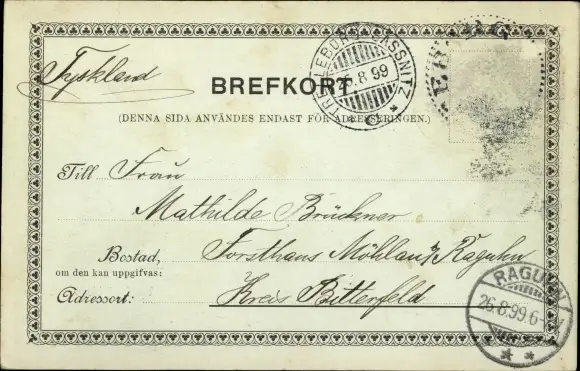 Tyskland
BREFKORT
(DENNA SIDA ANVÄNDES ENDAST FÖR ADRESSERINGEN.)
TRELLEBORG SASSNITZ
8.99
Till Frau
Mathilde Brückner
Bostad, Forsthaus Möhlau b/Raguhn
om den kan uppgifvas:
Adressort: Kreis Bitterfeld
RAGUHN
26.8.99.6-